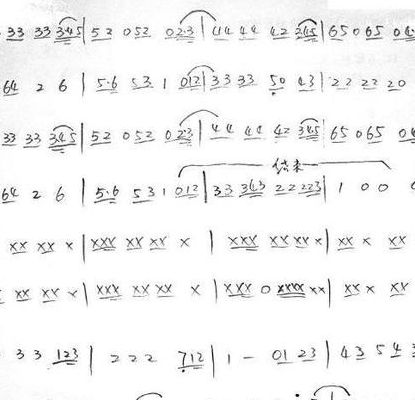 33 33 345 | 52 052 023 | 44 44 42 345 | 65 065 04
64 2 6 | 5·6 53 1 012 | 33 33 50 43 | 22 22 20
33 33 345 | 52 052 023 | 44 44 42 345 | 65 065 04
结束
64 2 6 | 5·6 53 1 012 | 33 343 22 223 | 1 0 0
xx xx x | xxx xx xx x | xxx xx xx x | xx x xx
xx xx x | xxx xx xx x | xxx 0 xxxx xx | xx x xx
3 3 123 | 2 2 2 712 | 1 – 01 23 | 43 5 4